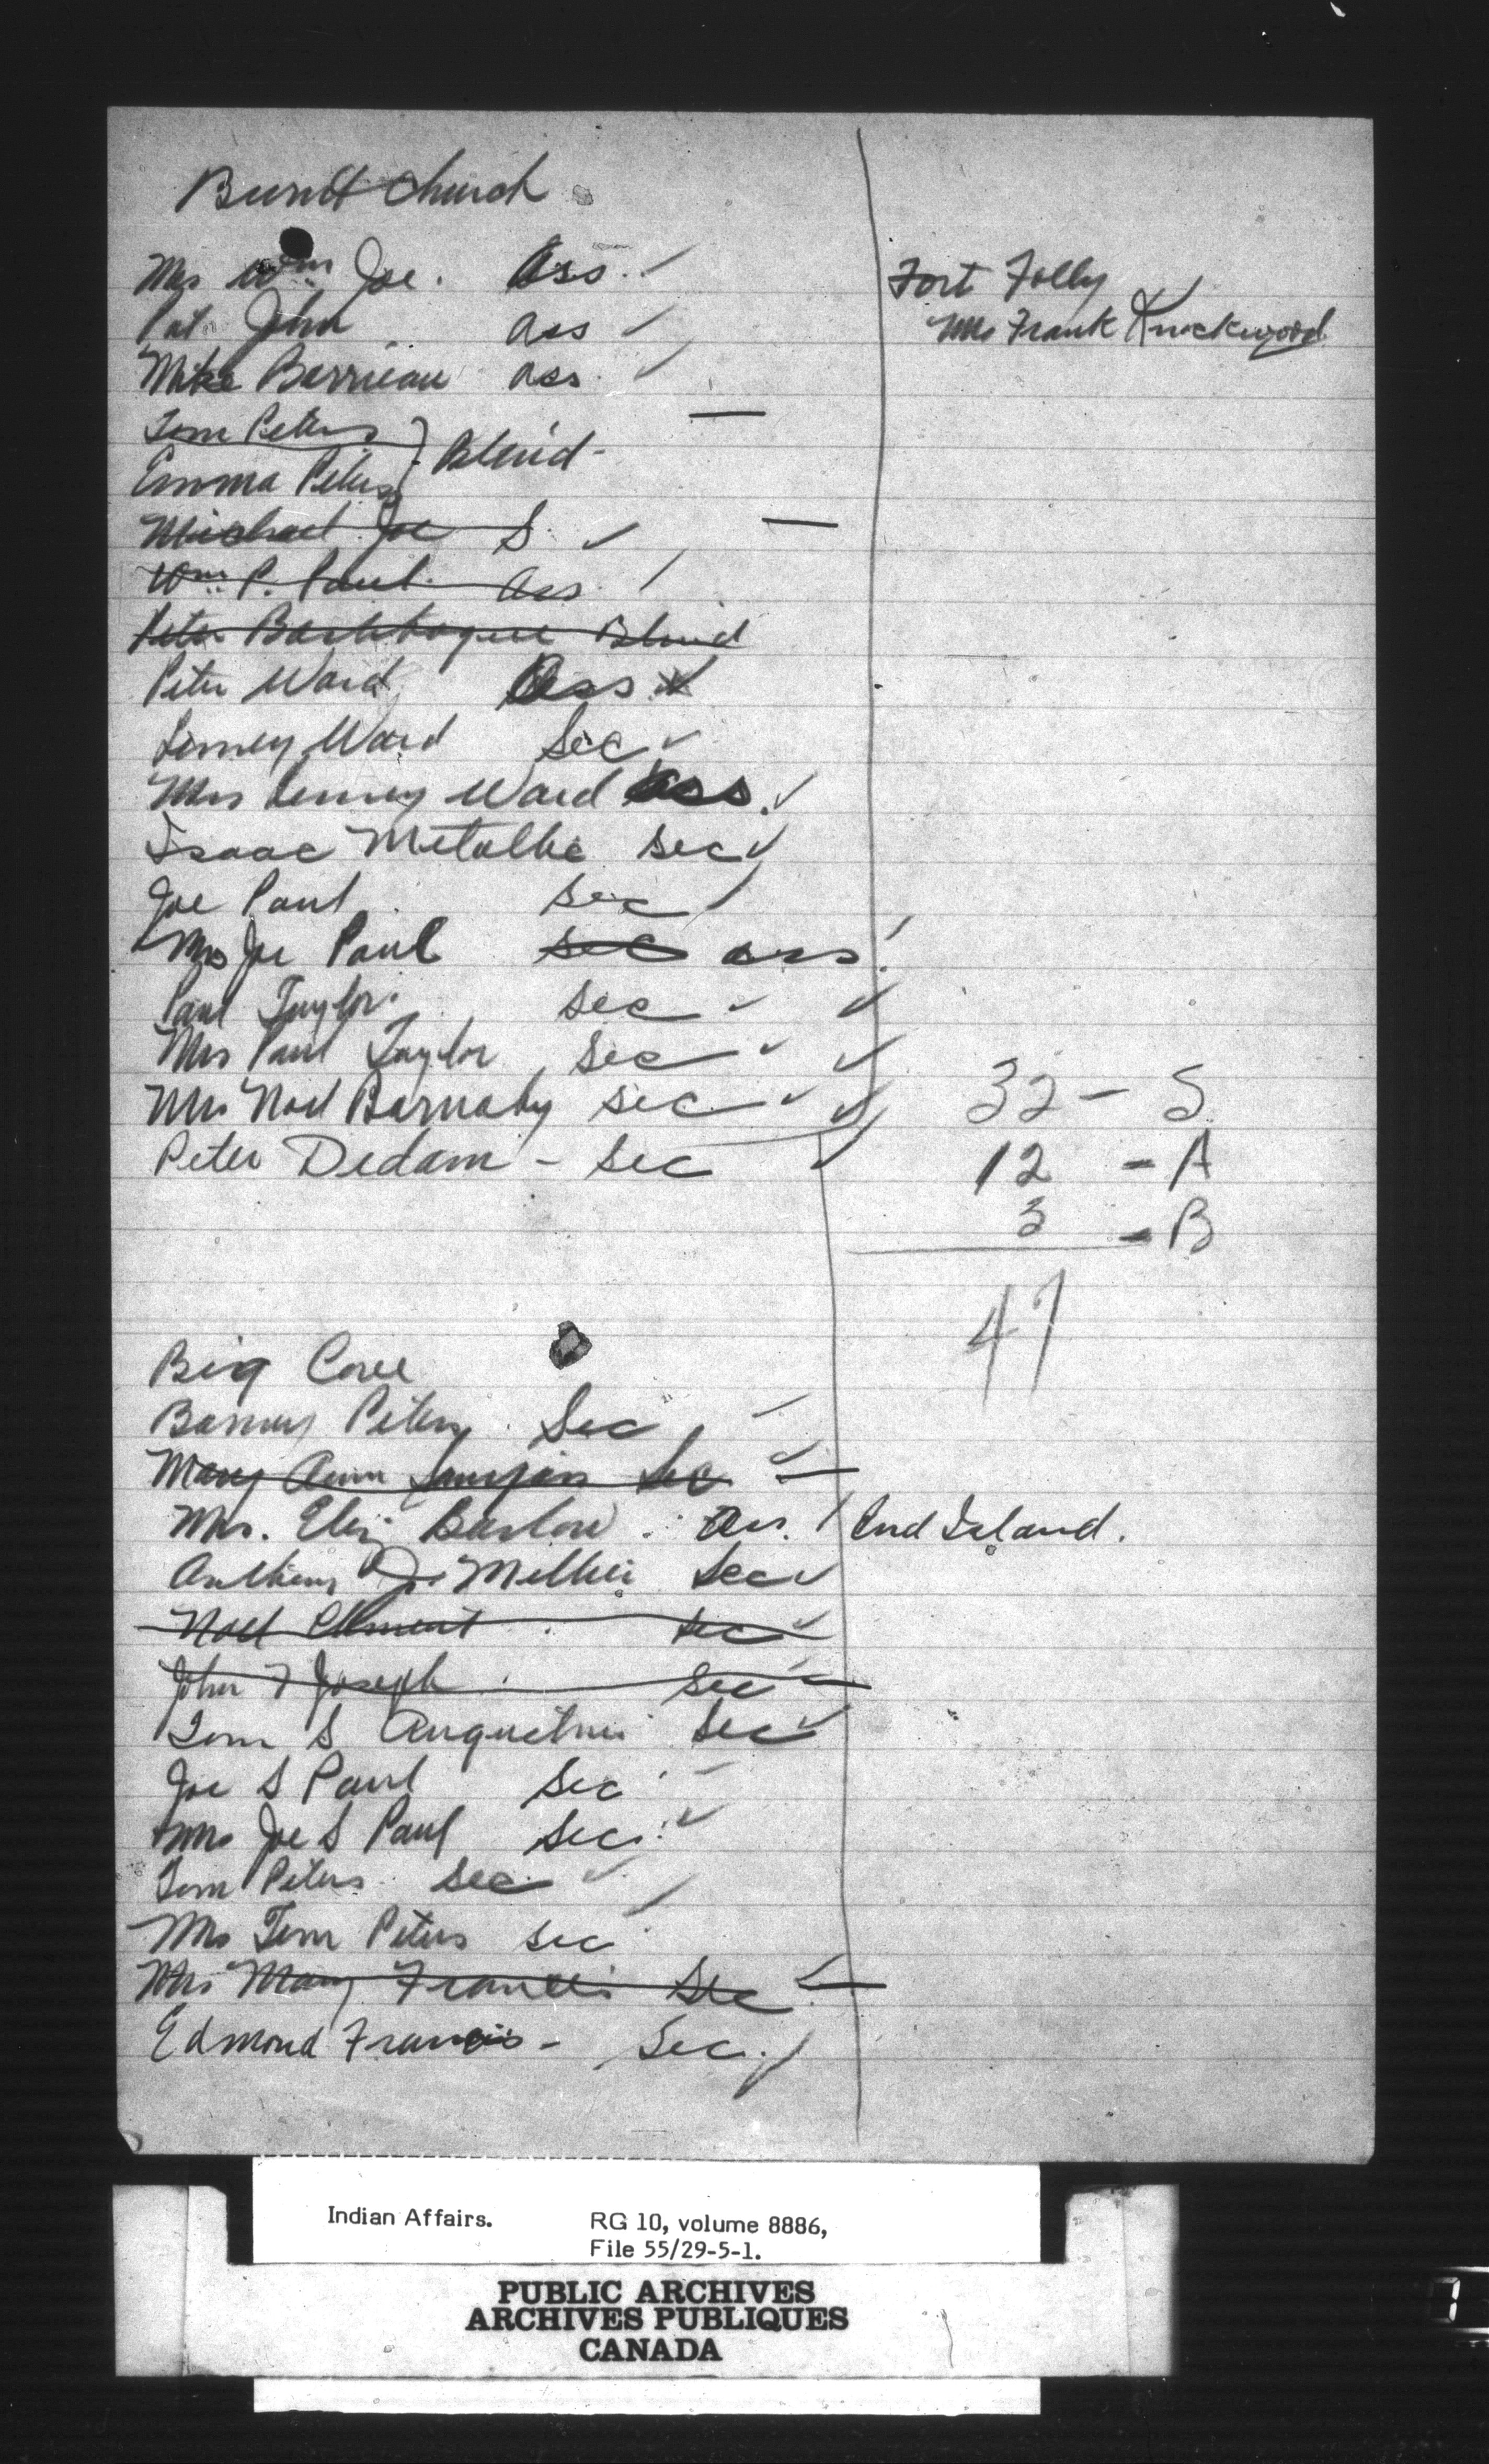 Burnt Church
Mrs Wm Joe. Ass. ✓
Pat John ass ✓
Mike Barrieau ass. ✓
Tom Peters } Blind -
Emma Peters
Michael Joe S ✓ —
Wm P. Paul ass. /
Peter Blind
Peter Ward Ass ✓
Lemey Ward Sec ✓
Mrs Lemey Ward Ass. ✓
Isaac Metallic Sec ✓
Joe Paul Sec /
Mrs Joe Paul sec ass /
Paul Taylor Sec ✓ ✓
Mrs Paul Taylor Sec ✓ ✓
Mrs Noel Barnaby Sec ✓ ✓
Peter Dedam - Sec ✓
Fort Folly
Mrs Frank Knockwood
32 - S
12 - A
3 - B
47
Big Cove
Barney Peters Sec ✓
Mary Ann Sec ✓ —
Mrs. Eliz Barlow. Ass. / Ind Island.
Anthony Jr Millier Sec ✓
Noel Clement Sec ✓
John T Joseph Sec ✓
Tom S Augustine Sec ✓
Joe S Paul Sec
Mrs Joe S Paul Sec. ✓
Tom Peters Sec ✓
Mrs Tom Peters Sec /
Mrs Mary Francis Sec ✓
Edmond Francis - Sec. /
Indian Affairs. RG 10, volume 8886,
File 55/29-5-1.
PUBLIC ARCHIVES
ARCHIVES PUBLIQUES
CANADA